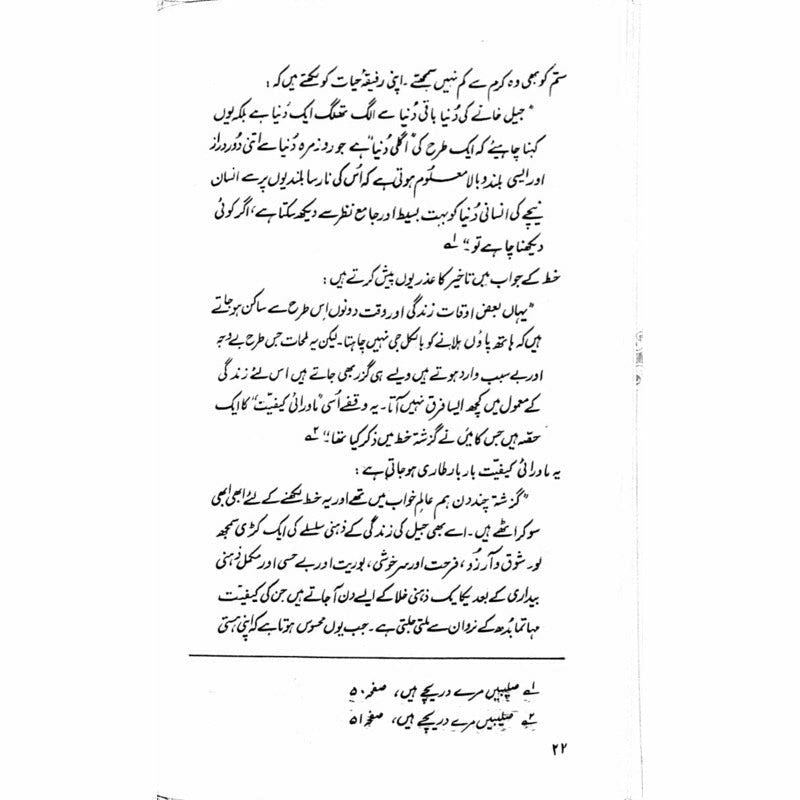 ستم کو بھی وہ کرم سے کم نہیں سمجھتے۔ اپنی رفیقۂ حیات کو لکھتے ہیں کہ :
"جیل خانے کی دُنیا باقی دُنیا سے الگ تھلگ ایک دُنیا ہے بلکہ یوں
کہنا چاہیئے کہ ایک طرح کی "اگلی دُنیا" ہے جو روزمرہ دُنیا سے اتنی دُور دراز
اور ایسی بلند و بالا معلوم ہوتی ہے کہ اُس کی نارسا بلندیوں پر سے انسان
نیچے کی انسانی دُنیا کو بہت بسیط اور جامع نظر سے دیکھ سکتا ہے، اگر کوئی
دیکھنا چاہے تو۔" ۱؎
خط کے جواب میں تاخیر کا عذر یوں پیش کرتے ہیں :
"یہاں بعض اوقات زندگی اور وقت دونوں اس طرح سے ساکن ہو جاتے
ہیں کہ ہاتھ پاؤں ہلانے کو بالکل جی نہیں چاہتا۔ لیکن یہ لمحات جس طرح بے وجہ
اور بے سبب وارد ہوتے ہیں ویسے ہی گزر بھی جاتے ہیں اس لئے زندگی
کے معمول میں کچھ ایسا فرق نہیں آتا۔ یہ وقفے اُسی "ماورائی کیفیّت" کا ایک
حصّہ ہیں جس کا میں نے گزشتہ خط میں ذکر کیا تھا۔" ۲؎
یہ ماورائی کیفیّت بار بار طاری ہو جاتی ہے :
"گزشتہ چند دن ہم عالمِ خواب میں تھے اور یہ خط لکھنے کے لئے ابھی ابھی
سو کر اٹھے ہیں۔ اسے بھی جیل کی زندگی کے ذہنی سلسلے کی ایک کڑی سمجھ
لو۔ شوق و آرزُو، فرحت اور سرخوشی، بوریت اور بے حسی اور مکمل ذہنی
بیداری کے بعد یکایک ذہنی خلا کے ایسے دن آ جاتے ہیں جن کی کیفیّت
مہاتما بُدھ کے نروان سے ملتی جلتی ہے۔ جب یوں محسوس ہوتا ہے کہ اپنی ہستی
۱؎ صلیبیں مرے دریچے میں، صفحہ ۵۰
۲؎ صلیبیں مرے دریچے میں، صفحہ ۵۱
۲۲